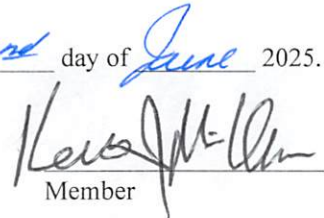 nd day of June 2025.
Member